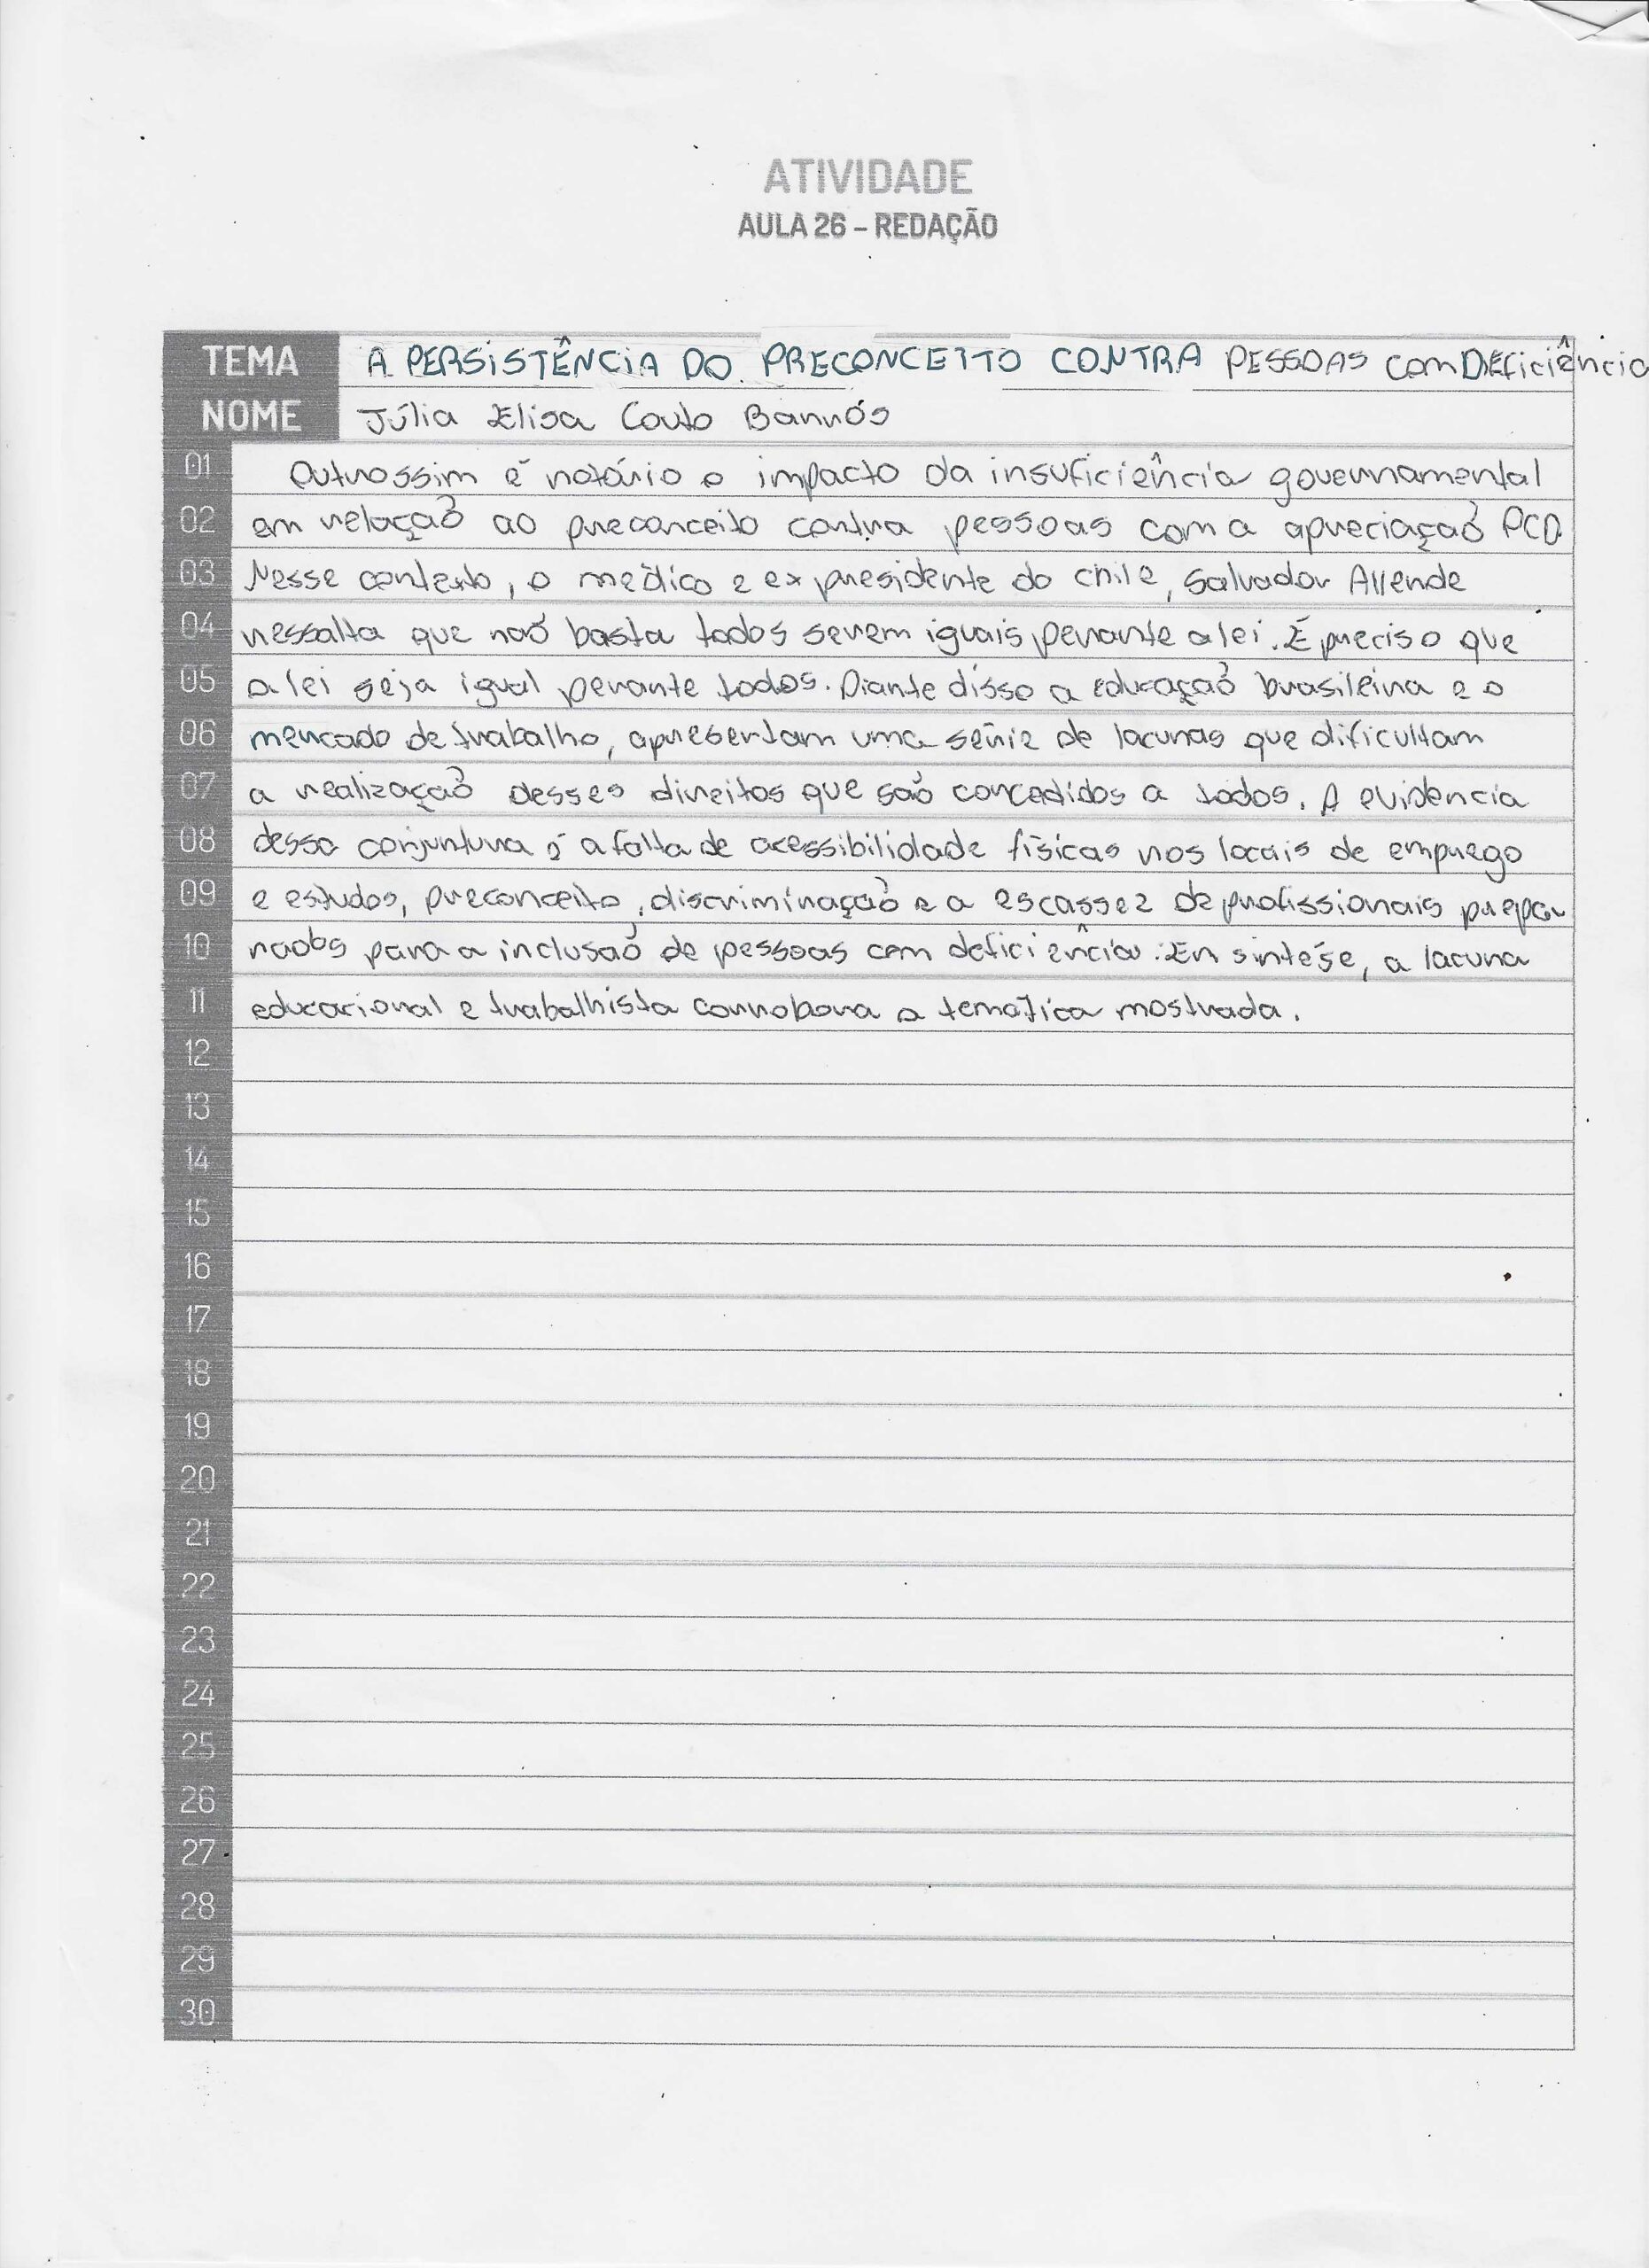 ATIVIDADE
AULA 26 - REDAÇÃO
TEMA A PERSISTÊNCIA DO PRECONCEITO CONTRA PESSOAS com DEficiência
NOME Júlia Elisa Couto Barrós
01 Outrossim é notório o impacto da insuficiência governamental
02 em relação ao preconceito contra pessoas com a apreciação PCD.
03 Nesse contexto, o médico e ex presidente do chile, Salvador Allende
04 ressalta que não basta todos serem iguais perante a lei. É preciso que
05 a lei seja igual perante todos. Diante disso a educação brasileira e o
06 mercado de trabalho, apresentam uma série de lacunas que dificultam
07 a realização desses direitos que são concedidos a todos. A evidencia
08 dessa conjuntura é a falta de acessibilidade físicas nos locais de emprego
09 e estudos, preconceito, discriminação e a escassez de profissionais prepa-
10 rados para a inclusão de pessoas com deficiência. Em sintése, a lacuna
11 educacional e trabalhista corrobora a temática mostrada.
12
13
14
15
16
17
18
19
20
21
22
23
24
25
26
27
28
29
30